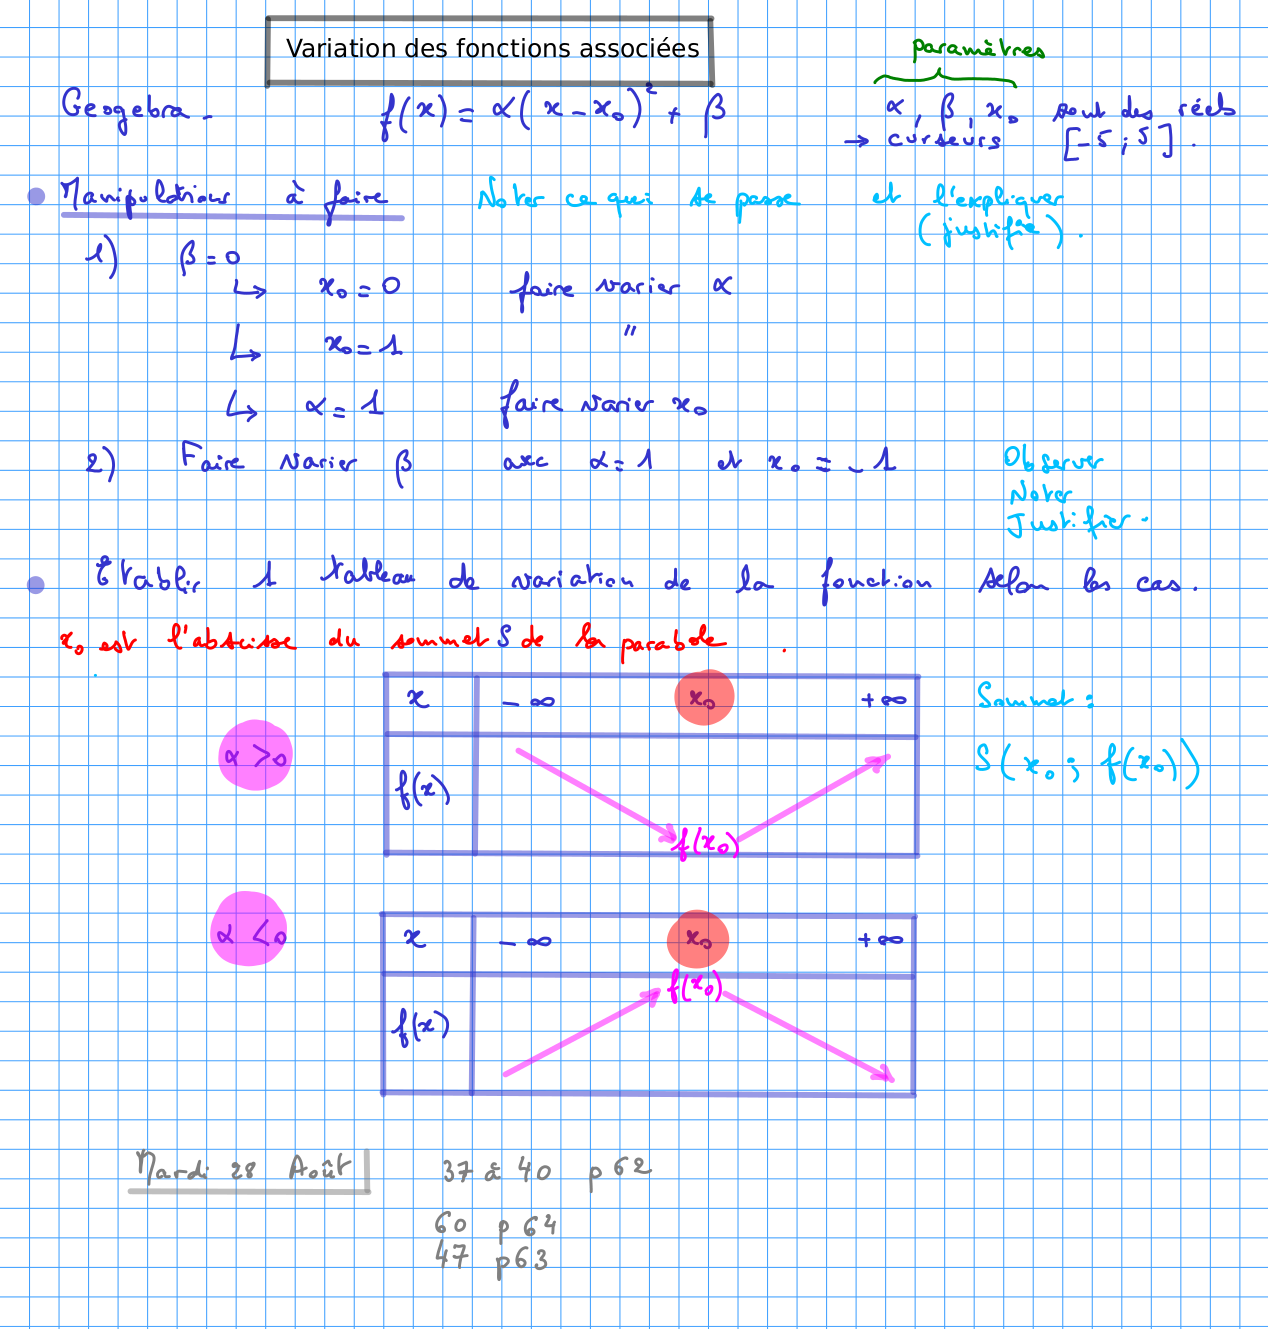 Variation des fonctions associées
paramètres
Geogebra - f(x) = α(x - x₀)² + β α, β, x₀ sont des réels
→ curseurs [-5 ; 5].
Manipulations à faire Noter ce qui se passe et l'expliquer
(justifier).
1) β = 0
↳ x₀ = 0 faire varier α
↳ x₀ = 1 "
↳ α = 1 faire varier x₀
2) Faire varier β avec α = 1 et x₀ = -1
Observer
Noter
Justifier.
Etablir 1 tableau de variation de la fonction selon les cas.
x₀ est l'abscisse du sommet S de la parabole.
x -∞ x₀ +∞
Sommet :
α > 0
S(x₀ ; f(x₀))
f(x)
f(x₀)
α < 0
x -∞ x₀ +∞
f(x₀)
f(x)
Mardi 28 Août 37 à 40 p 62
60 p 64
47 p63